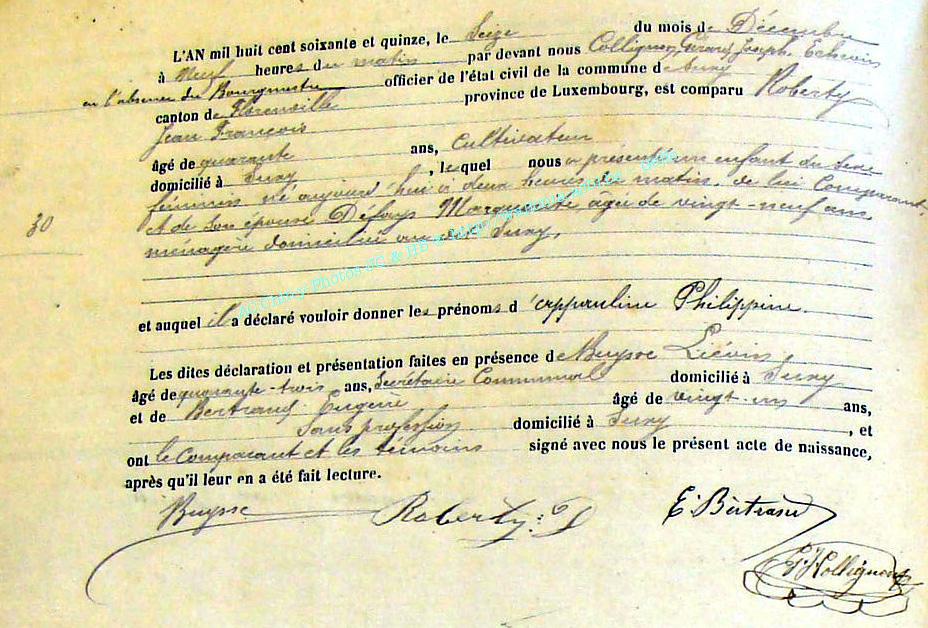 L'AN mil huit cent soixante et quinze, le Seize du mois de Décembre
à Neuf heures du matin par devant nous Collignon, Gérard, Joseph Echevin
en l'absence du Bourgmestre officier de l'état civil de la commune de Suxy
canton de Florenville province de Luxembourg, est comparu Roberty
Jean François
âgé de quarante ans, Cultivateur
domicilié à Suxy, lequel nous a présenté un enfant du sexe
féminin né aujourd'hui à deux heures du matin, de lui Comparant,
et de son épouse Défays Marguerite agée de vingt-neuf ans
30
ménagère domiciliée au dit Suxy,
et auquel il a déclaré vouloir donner les prénoms d' Philippine.
Les dites déclaration et présentation faites en présence de Buysse Liévin
âgé de quarante-trois ans, Secrétaire Communal domicilié à Suxy
et de Bertrand Eugène âgé de vingt-un ans,
Sans profession domicilié à Suxy, et
ont le Comparant et les témoins signé avec nous le présent acte de naissance,
après qu'il leur en a été fait lecture.
Buysse Roberty. E. Bertrand
Collignon